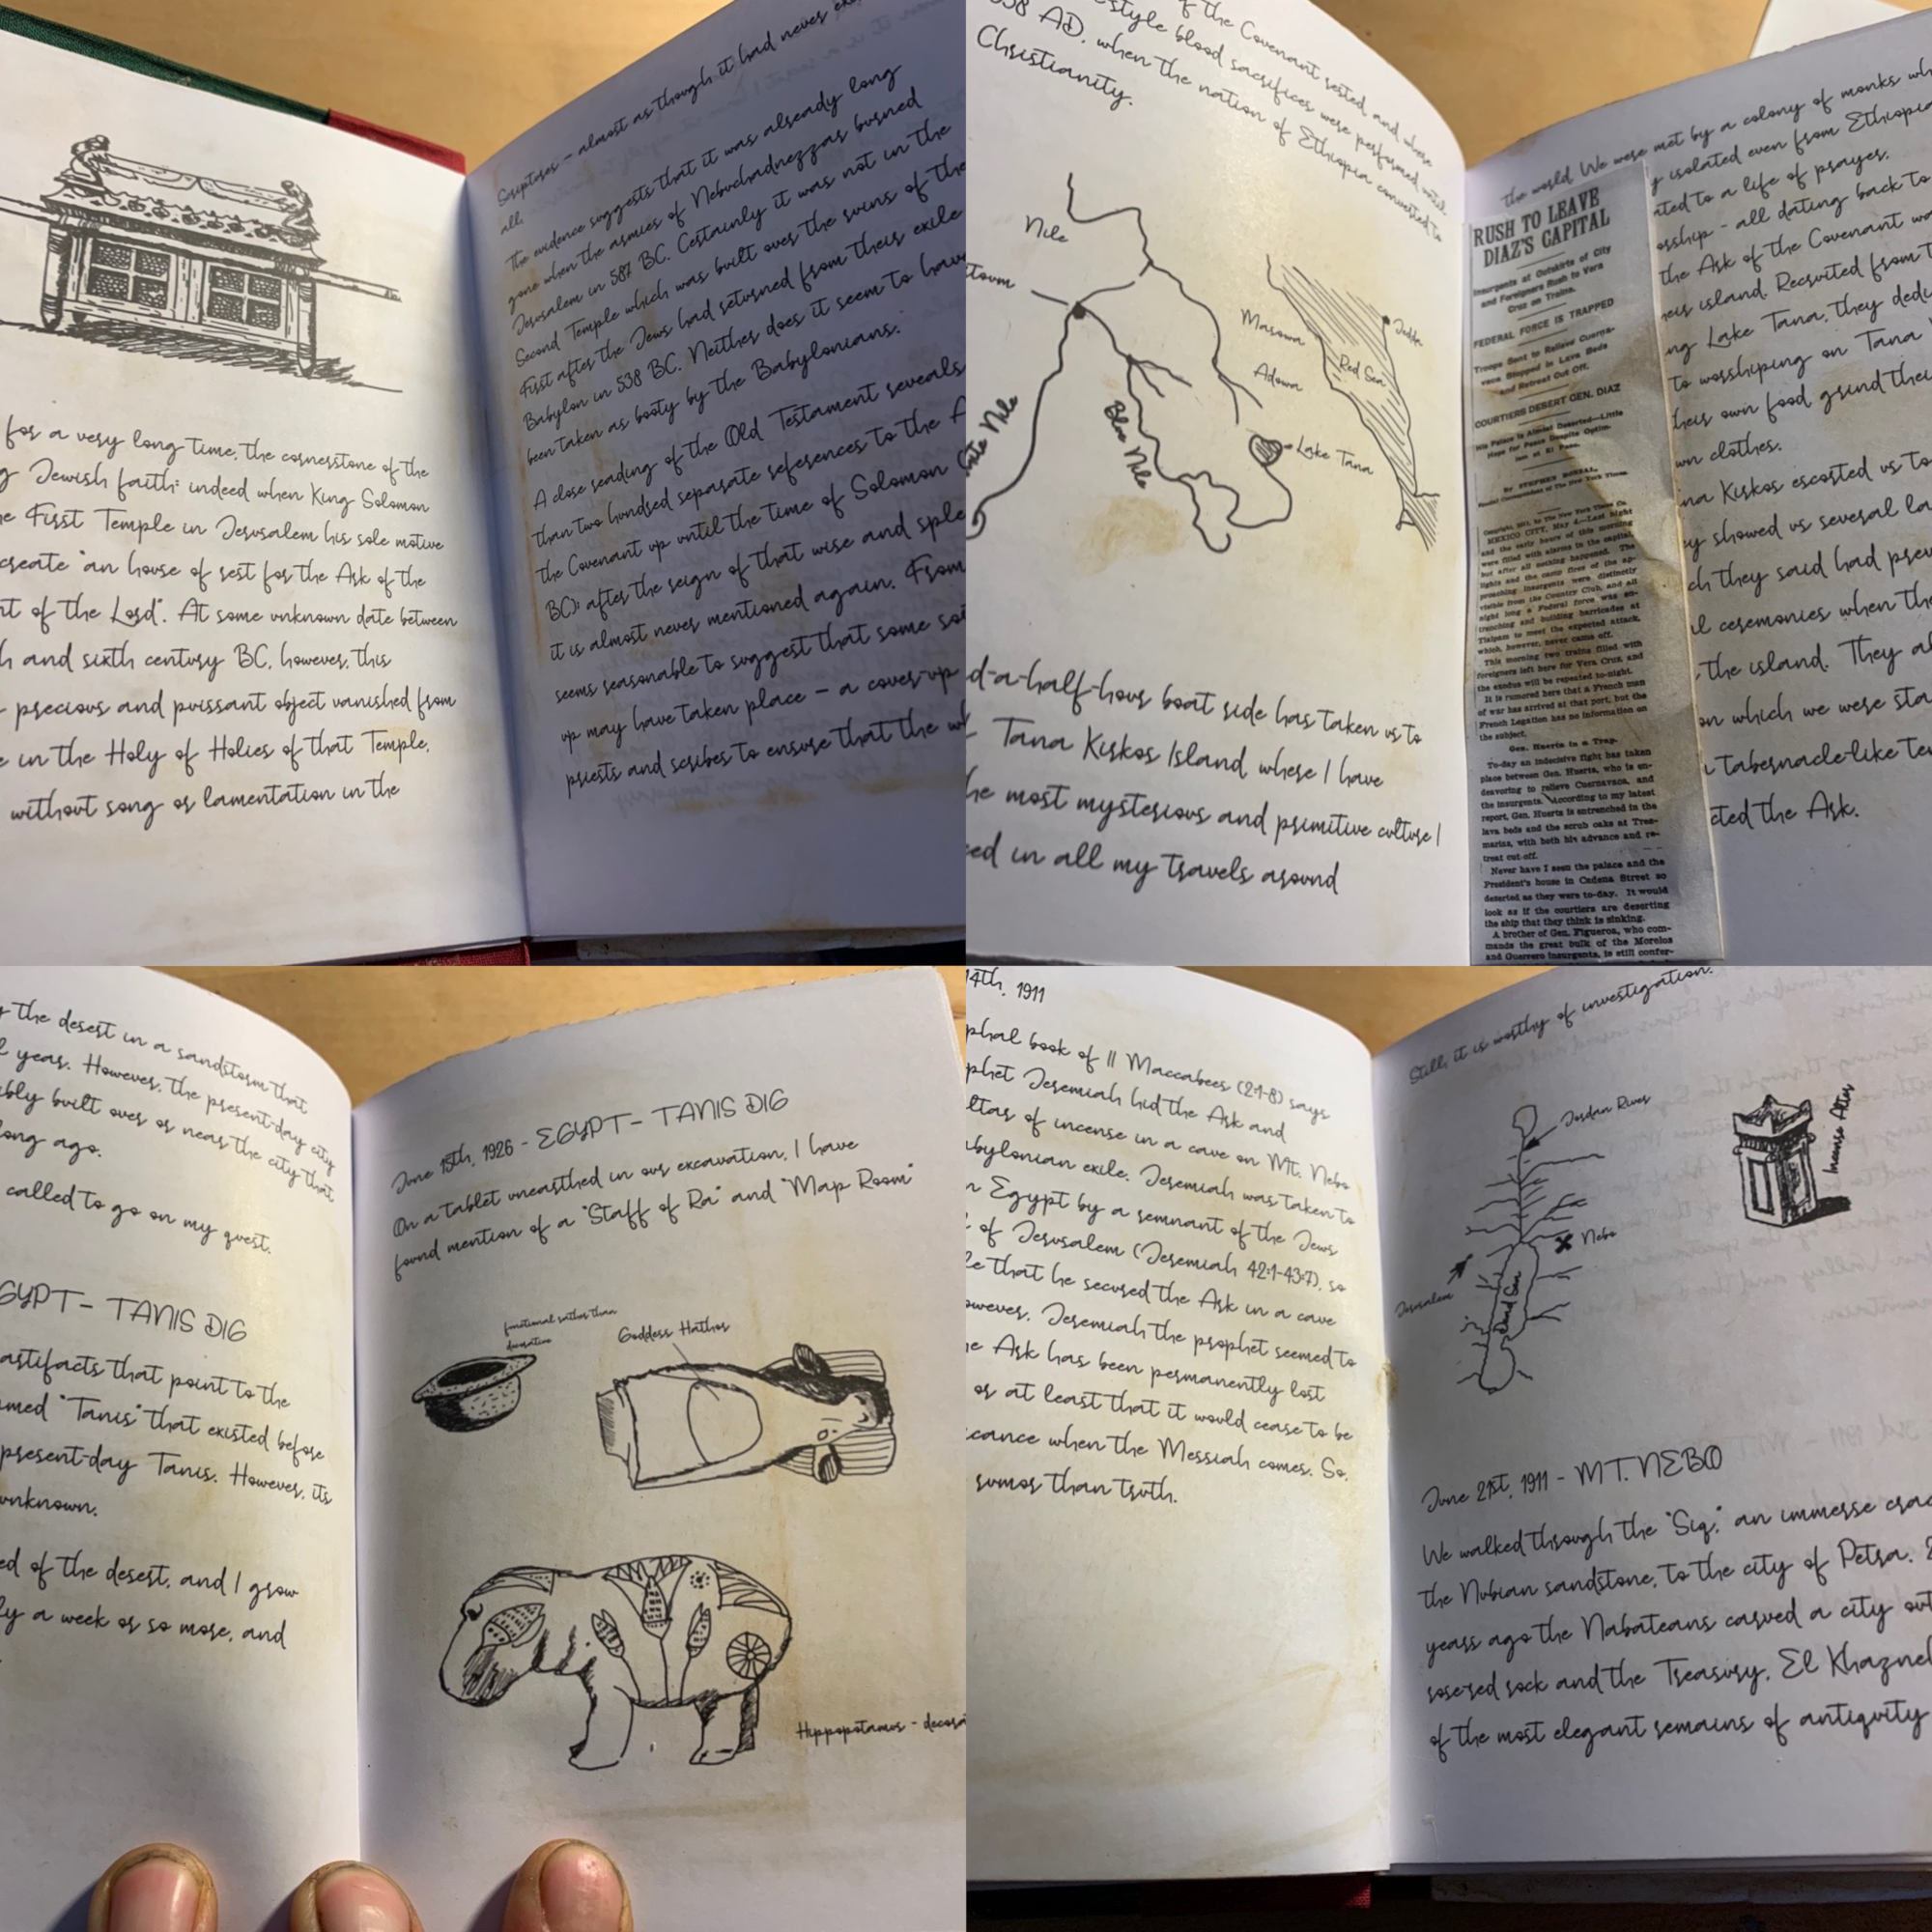 for a very long time, the cornerstone of the
Jewish faith; indeed when King Solomon
First Temple in Jerusalem his sole motive
create "an house of rest for the Ark of the
of the Lord". At some unknown date between
and sixth century BC, however, this
precious and puissant object vanished from
in the Holy of Holies of that Temple,
without song or lamentation in the
Scriptures - almost as though it had never
all.
The evidence suggests that it was already long
gone when the armies of Nebuchadnezzar burned
Jerusalem in 587 BC. Certainly it was not in the
Second Temple which was built over the ruins of the
First after the Jews had returned from their exile
Babylon in 538 BC. Neither does it seem to have
been taken as booty by the Babylonians.
A close reading of the Old Testament reveals
than two hundred separate references to the
the Covenant up until the time of Solomon
BC); after the reign of that wise and
it is almost never mentioned again. From
seems reasonable to suggest that some
up may have taken place - a cover-up
priests and scribes to ensure that the
of the Covenant rested, and whose
style blood sacrifices were performed until
AD, when the nation of Ethiopia converted to
Christianity.
Nile
Masowa
Jedda
Red Sea
Adowa
Nile
Blue Nile
Lake Tana
d-a-half-hour boat ride has taken us to
Tana Kirkos Island, where I have
most mysterious and primitive culture I
in all my travels around
the world. We were met by a colony of monks
isolated even from Ethiopia
to a life of prayer,
- all dating back to
the Ark of the Covenant
island. Recruited from
Lake Tana, they
to worshiping on Tana
their own food grind their
clothes.
Kirkos escorted us to
showed us several
they said had
ceremonies when the
the island. They
on which we were
tabernacle-like
the Ark.
RUSH TO LEAVE
DIAZ'S CAPITAL
Insurgents at Outskirts of City
and Foreigners Rush to Vera
Cruz on Trains.
FEDERAL FORCE IS TRAPPED
Troops Sent to Relieve Cuerna-
vaca Stopped in Lava Beds
and Retreat Cut Off.
COURTIERS DESERT GEN. DIAZ
His Palace Is Almost Deserted—Little
Hope for Peace Despite Optim-
ism at El Paso.
By STEPHEN BONSAL,
Special Correspondent of The New York Times.
Copyright, 1911, by The New York Times Co.
MEXICO CITY, May 4.—Last night
and the early hours of this morning
were filled with alarms in the capital,
but after all nothing happened. The
lights and the camp fires of the ap-
proaching insurgents were distinctly
visible from the Country Club, and all
night long a Federal force was en-
trenching and building barricades at
Tlalpam to meet the expected attack,
which, however, never came off.
This morning two trains filled with
foreigners left here for Vera Cruz and
the exodus will be repeated to-night.
It is rumored here that a French man
of war has arrived at that port, but the
French Legation has no information on
the subject.
Gen. Huerta in a Trap.
To-day an indecisive fight has taken
place between Gen. Huerta, who is en-
deavoring to relieve Cuernavaca, and
the insurgents. According to my latest
report, Gen. Huerta is entrenched in the
lava beds and the scrub oaks at Tres-
marias, with both his advance and re-
treat cut off.
Never have I seen the palace and the
President's house in Cadena Street so
deserted as they were to-day. It would
look as if the courtiers are deserting
the ship that they think is sinking.
A brother of Gen. Figueroa, who com-
mands the great bulk of the Morelos
and Guerrero insurgents, is still confer-
the desert in a sandstorm that
year. However, the present-day city
built over or near the city that
long ago.
called to go on my quest.
TANIS DIG
artifacts that point to the
"Tanis" that existed before
present-day Tanis. However, its
unknown.
of the desert, and I grow
a week or so more, and
June 15th, 1926 - EGYPT - TANIS DIG
On a tablet unearthed in our excavation, I have
found mention of a "Staff of Ra" and "Map Room"
functional rather than
decorative
Goddess Hathor
Hippopotamus -
14th, 1911
book of II Maccabees (2:1-8) says
Jeremiah hid the Ark and
of incense in a cave on Mt. Nebo
exile. Jeremiah was taken to
Egypt by a remnant of the Jews
of Jerusalem (Jeremiah 42:1-43:7), so
that he secured the Ark in a cave
However, Jeremiah the prophet seemed to
Ark has been permanently lost
or at least that it would cease to be
when the Messiah comes. So,
rumor than truth.
Still, it is worthy of investigation.
Jordan River
Incense Altar
Nebo
Jerusalem
Dead Sea
June 21st, 1911 - MT. NEBO
We walked through the "Siq," an immerse
the Nubian sandstone, to the city of Petra.
years ago the Nabateans carved a city
rose-red rock and the Treasury, El
of the most elegant remains of antiquity